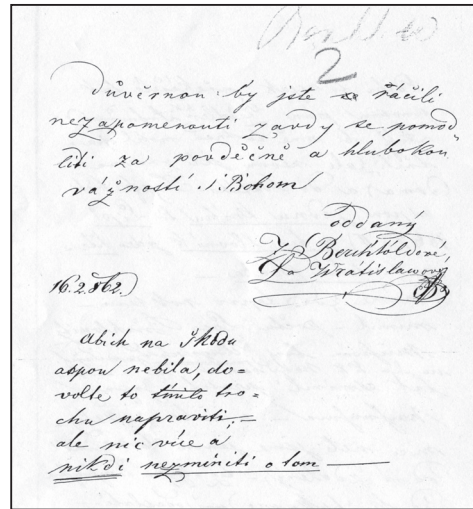 2
Důvěrnou by jste se ráčili
nezapomenouti zavdy se pomod„
liti za povděčně a hlubokou
vážností. s Bohem
oddaný
Berchtoldové,
Wratislawové
16.2.862.
Abich na škodu
aspoň nebila, do=
volte to tímto tro=
chu napraviti,=
ale nic více a
nikdi nezmíniti o tom —